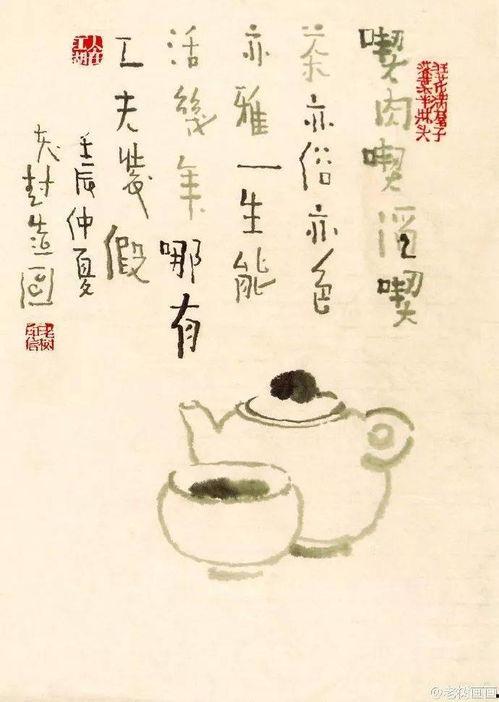 喫肉喫酒喫
茶亦俗亦色
亦雅一生能
活幾年哪有
工夫裝假
壬辰仲夏
封造圖
人在江湖
@老树画画